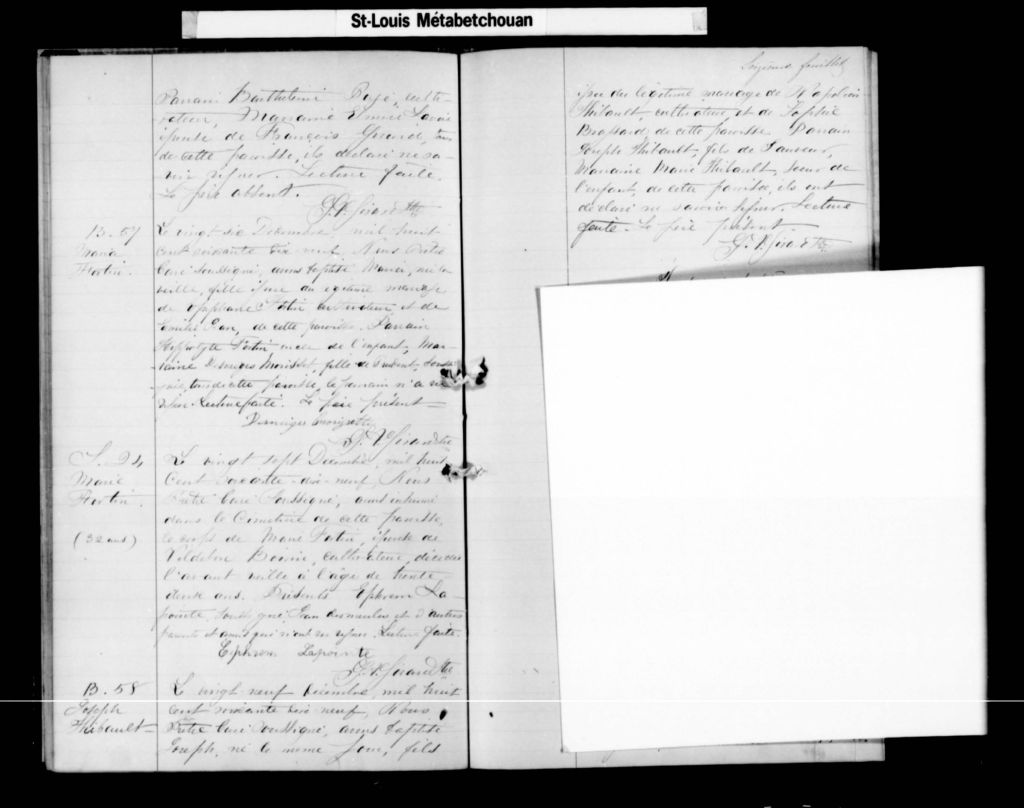 St-Louis Métabetchouan
Parrain Barthelimi culti-
vateur, Marraine
épouse de François Girard, tous
de cette paroisse, ils déclaré ne sa-
voir signer. Lecture faite.
Le père absent.
B. 57
Maria
Fortin.
Le vingt six Décembre, mil huit
cent soixante dix neuf, Nous Prêtre
Curé Soussigné, avons baptisé Maria, née la
veille, fille issue du légitime mariage
de Fortin cultivateur et de
de cette paroisse. Parrain
Hippolyte Fortin oncle de l'enfant, Mar-
raine Morisset, fille de
tous de cette paroisse, le parrain n'a su
signer. Lecture faite. Le père présent
S. 24
Marie
Fortin.
(32 ans)
Le vingt sept Décembre, mil huit
Cent soixante-dix-neuf, Nous
Prêtre Curé Soussigné, avons inhumé
dans le Cimetière de cette paroisse,
le corps de Marie Fortin, épouse de
cultivateur, décédée
l'avant veille à l'âge de trente
deux ans. Présents Ephrem La-
pointe, soussigné, Jean et d'autres
parents et amis qui n'ont su signer. Lecture faite.
Ephrem Lapointe
B. 58
Joseph
Thibault
Le vingt neuf Décembre, mil huit
cent soixante dix neuf, Nous
Prêtre Curé Soussigné, avons baptisé
Joseph, né le même jour, fils
feuillet
issu du légitime mariage de Napoléon
Thibault, cultivateur, et de Sophie
Brassard, de cette paroisse. Parrain
Joseph Thibault, fils de
Marraine Marie Thibault, soeur de
l'enfant de cette paroisse, ils ont
déclaré ne savoir signer. Lecture
faite. Le père présent